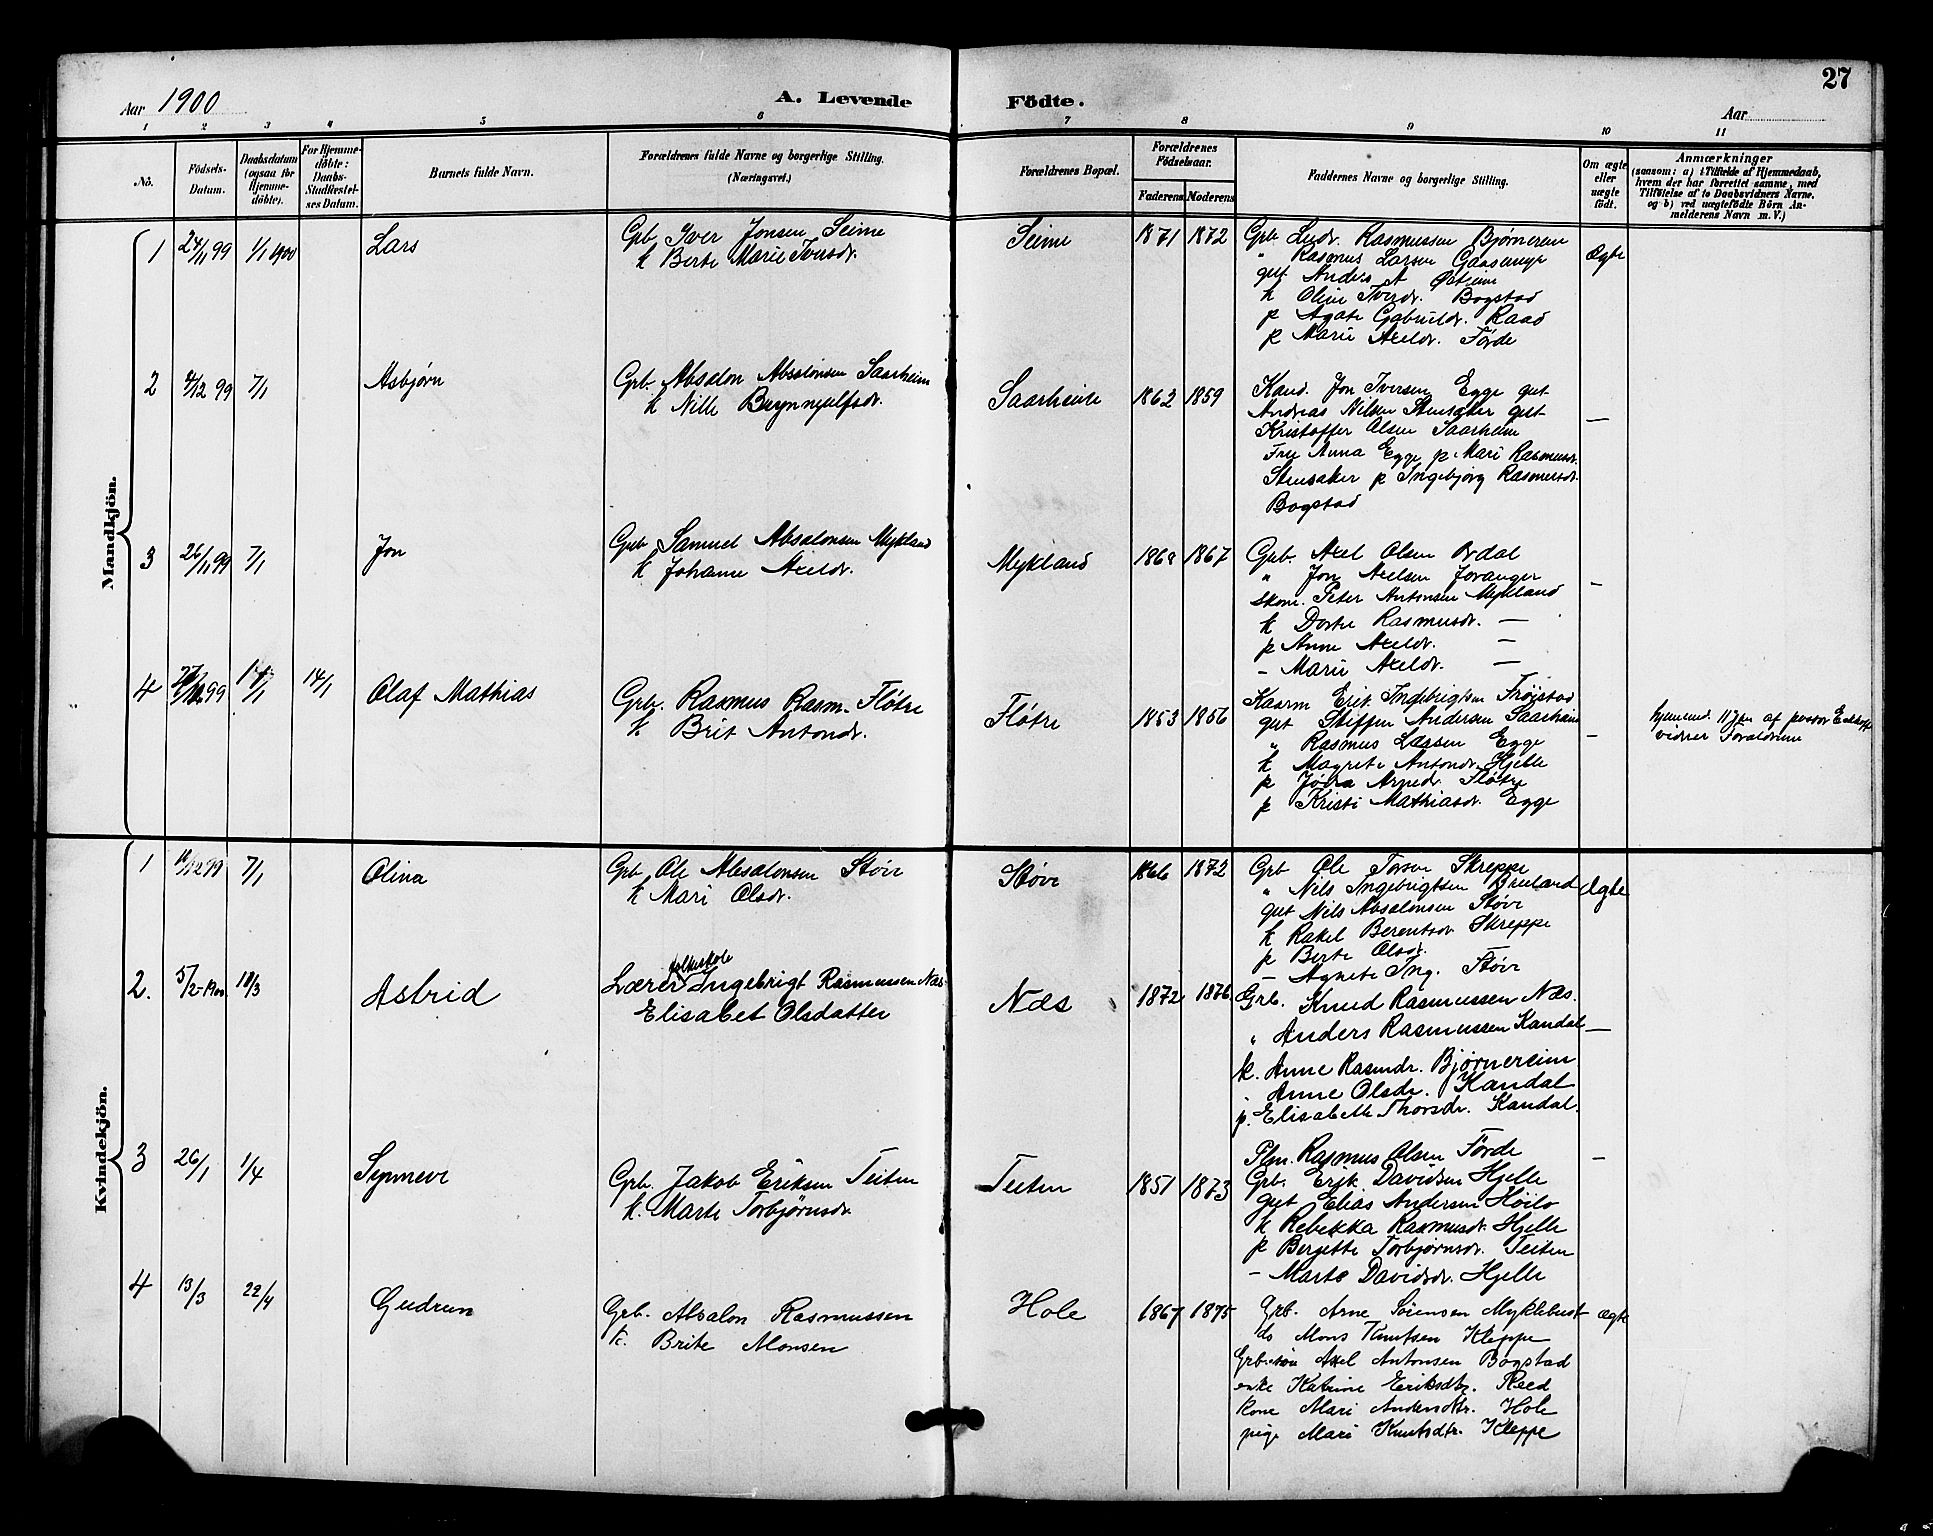 27
Aar 1900 A. Levende Födte. Aar
1 2 3 4 5 6 7 8 9 10 11
No. Födsels-Datum. Daabsdatum (ogsaa for Hjemme-döbte). For Hjemme-döbte: Daabs-Stadfæstelses Datum. Barnets fulde Navn. Forældrenes fulde Navne og borgerlige Stilling. (Næringsvei.) Forældrenes Bopæl. Forældrenes Födselsaar. Faderens Moderens Faddernes Navne og borgerlige Stilling. Om ægte eller uægte födt. Anmærkninger (saasom: a) i Tilfælde af Hjemmedaab, hvem der har forrettet samme, med Tilföielse af to Daabsvidners Navne, og b) ved uægtefödte Börn Anmelderens Navn m. V.)
Mandkjön.
1 24/11 99 1/1 1900 Lars Grb. Iver Jonsen Seime Seime 1871 1872 Grb Ludv. Rasmussen Bjørnereim Ægte
k Berte Marie Iversdr. " Rasmus Larsen
gut Anders A
k Oline Iversdr. Bogstad
p Agate Gabrieldr. Raad
p Marie Axeldr. Førde
2 4/12 99 7/1 Asbjørn Grb. Absalon Absalonsen Saarheim Saarheim 1862 1859 Kand. Jon Iversen Egge gut —
k Nille Brynnjulfsdr. Andreas Nilsen Stensaker gut
Kristoffer Olsen Saarheim
Fru Anna Egge p Mari Rasmusdr.
Stensaker p Ingebjørg Rasmusdr.
Bogstad
3 26/11 99 7/1 Jon Grb Samuel Absalonsen Mykland Mykland 1867 Grb. Axel Olsen Ordal —
k Johanne Axeldr. " Jon Axelsen Joranger
Peter Antonsen Mykland
k Dorte Rasmusdr. —
p Anne Axeldr. —
- Marie Axeldr. —
4 14/1 Olaf Mathias Grb. Rasmus Rasm. Fløtre Fløtre 1853 1856 Kaarm Erik Ingebrigtsen Frøistad —
k. Brit Antondr. gut Steffen Andersen Saarheim
" Rasmus Larsen Egge
k Magrete Antondr. Hjelle
p Arnedr. Fløtre
p Kristi Mathiasdr. Egge
af
vidner Forældrene
Kvindekjön.
1 7/1 Olina Grb Ole Absalonsen Støve Støve 1866 1872 Grb Ole Skreppe Ægte
k Mari Olsdr. " Nils Ingebrigtsen Breeland
gut Nils Absalonsen Støve
k Rakel Berentsdr Skreppe
p Berte Olsdr.
- Agnete Ing. Støve
2. 5/2 1900 18/3 Astrid Lærer folkeskole Ingebrigt Rasmussen Næs Næs 1872 1876 Grb. Knud Rasmussen Næs. —
Elisabet Olsdatter " Anders Rasmussen Kandal
k. Anne Rasmdr. Bjørnereim
. Anne Olsdr. Kandal
p. Elisabeth Thorsdr. Kandal.
3 26/1 1/4 Synneve Grb. Jakob Eriksen Teiten Teiten 1851 1873 Plm. Rasmus Olsen Førde —
k. Marte Torbjørnsdr Grb. Erik Davidsen Hjelle
gut Elias Andersen Høilo
k Rebekka Rasmusdr. Hjelle
p Bergette Torbjørnsdr. Teiten
- Marte Davidsdr. Hjelle
4 13/3 22/4 Gudrun Grb. Absalon Rasmussen Hole 1867 1875 Grb. Arne Sørensen Myklebust ægte
k. Brite Monsen do Mons Knutsen Kleppe
Grb.søn Axel Antonsen Bogstad
enke Katrine Eriksdtr. Reed
kone Mari Andersdtr. Hole
pige Mari Knutsdtr. Kleppe